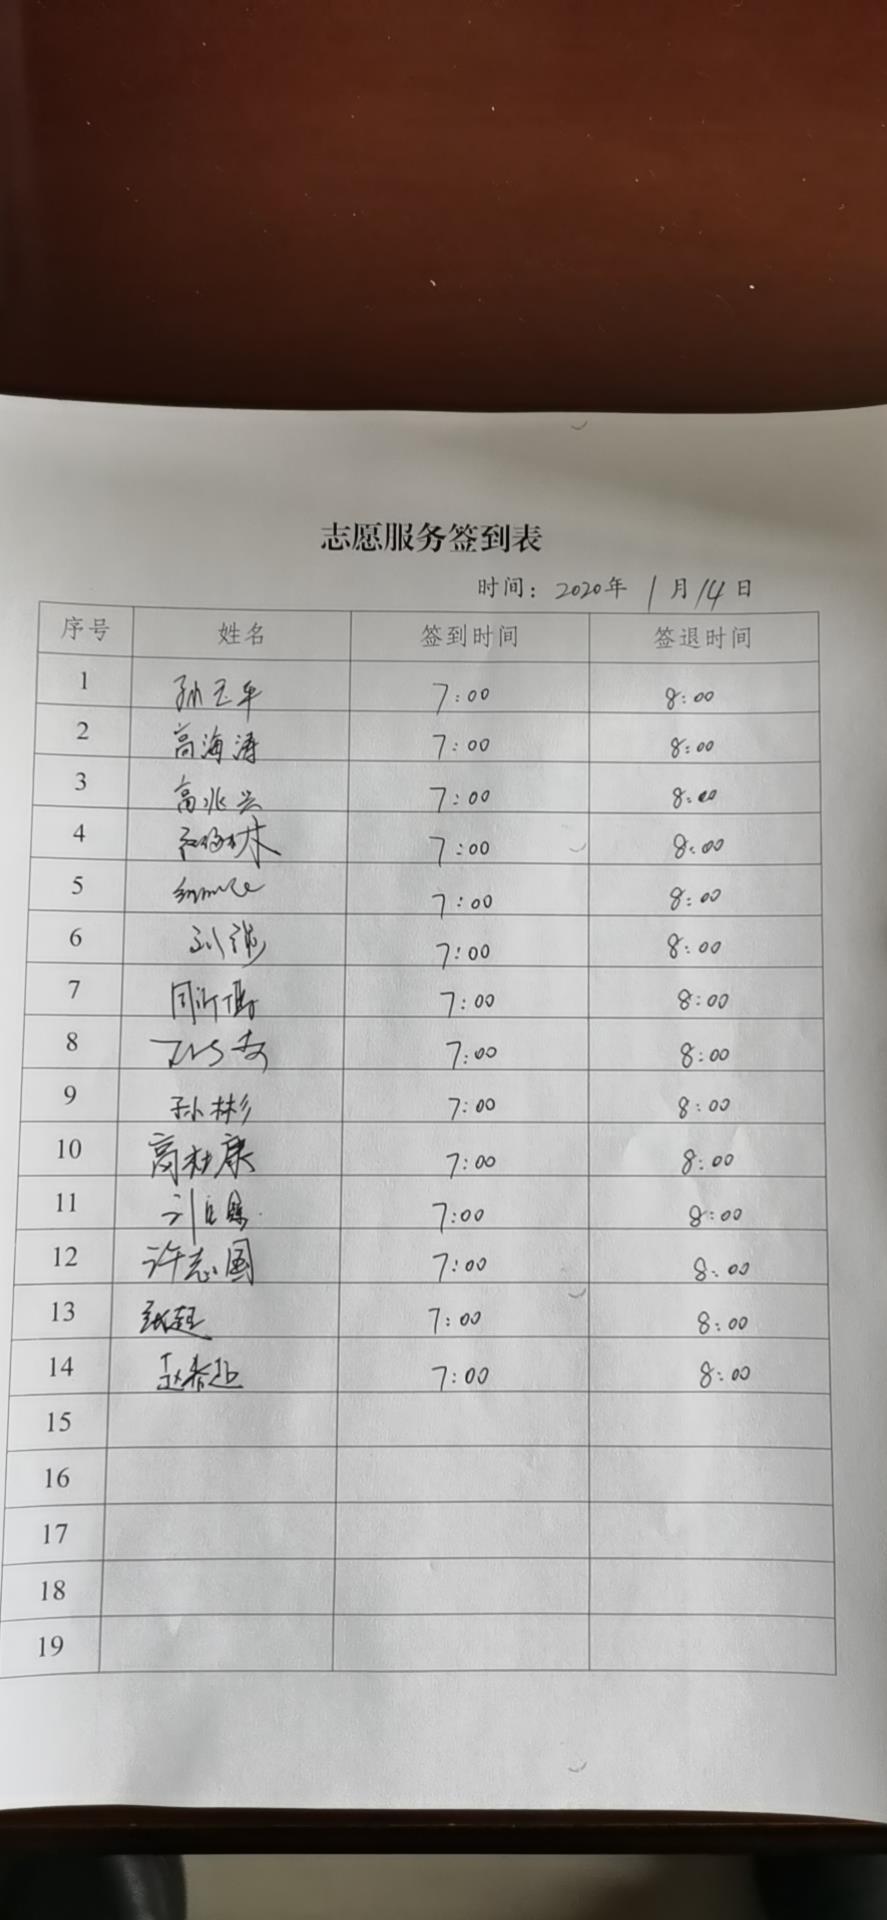 志愿服务签到表
时间：2020年 1月14日
序号 姓名 签到时间 签退时间
1 孙玉车 7:00 8:00
2 高海涛 7:00 8:00
3 高兆兴 7:00 8:00
4 7:00 8:00
5 7:00 8:00
6 刘 7:00 8:00
7 7:00 8:00
8 7:00 8:00
9 孙彬 7:00 8:00
10 高杜康 7:00 8:00
11 刘 7:00 8:00
12 许志国 7:00 8:00
13 张 7:00 8:00
14 赵春 7:00 8:00
15
16
17
18
19